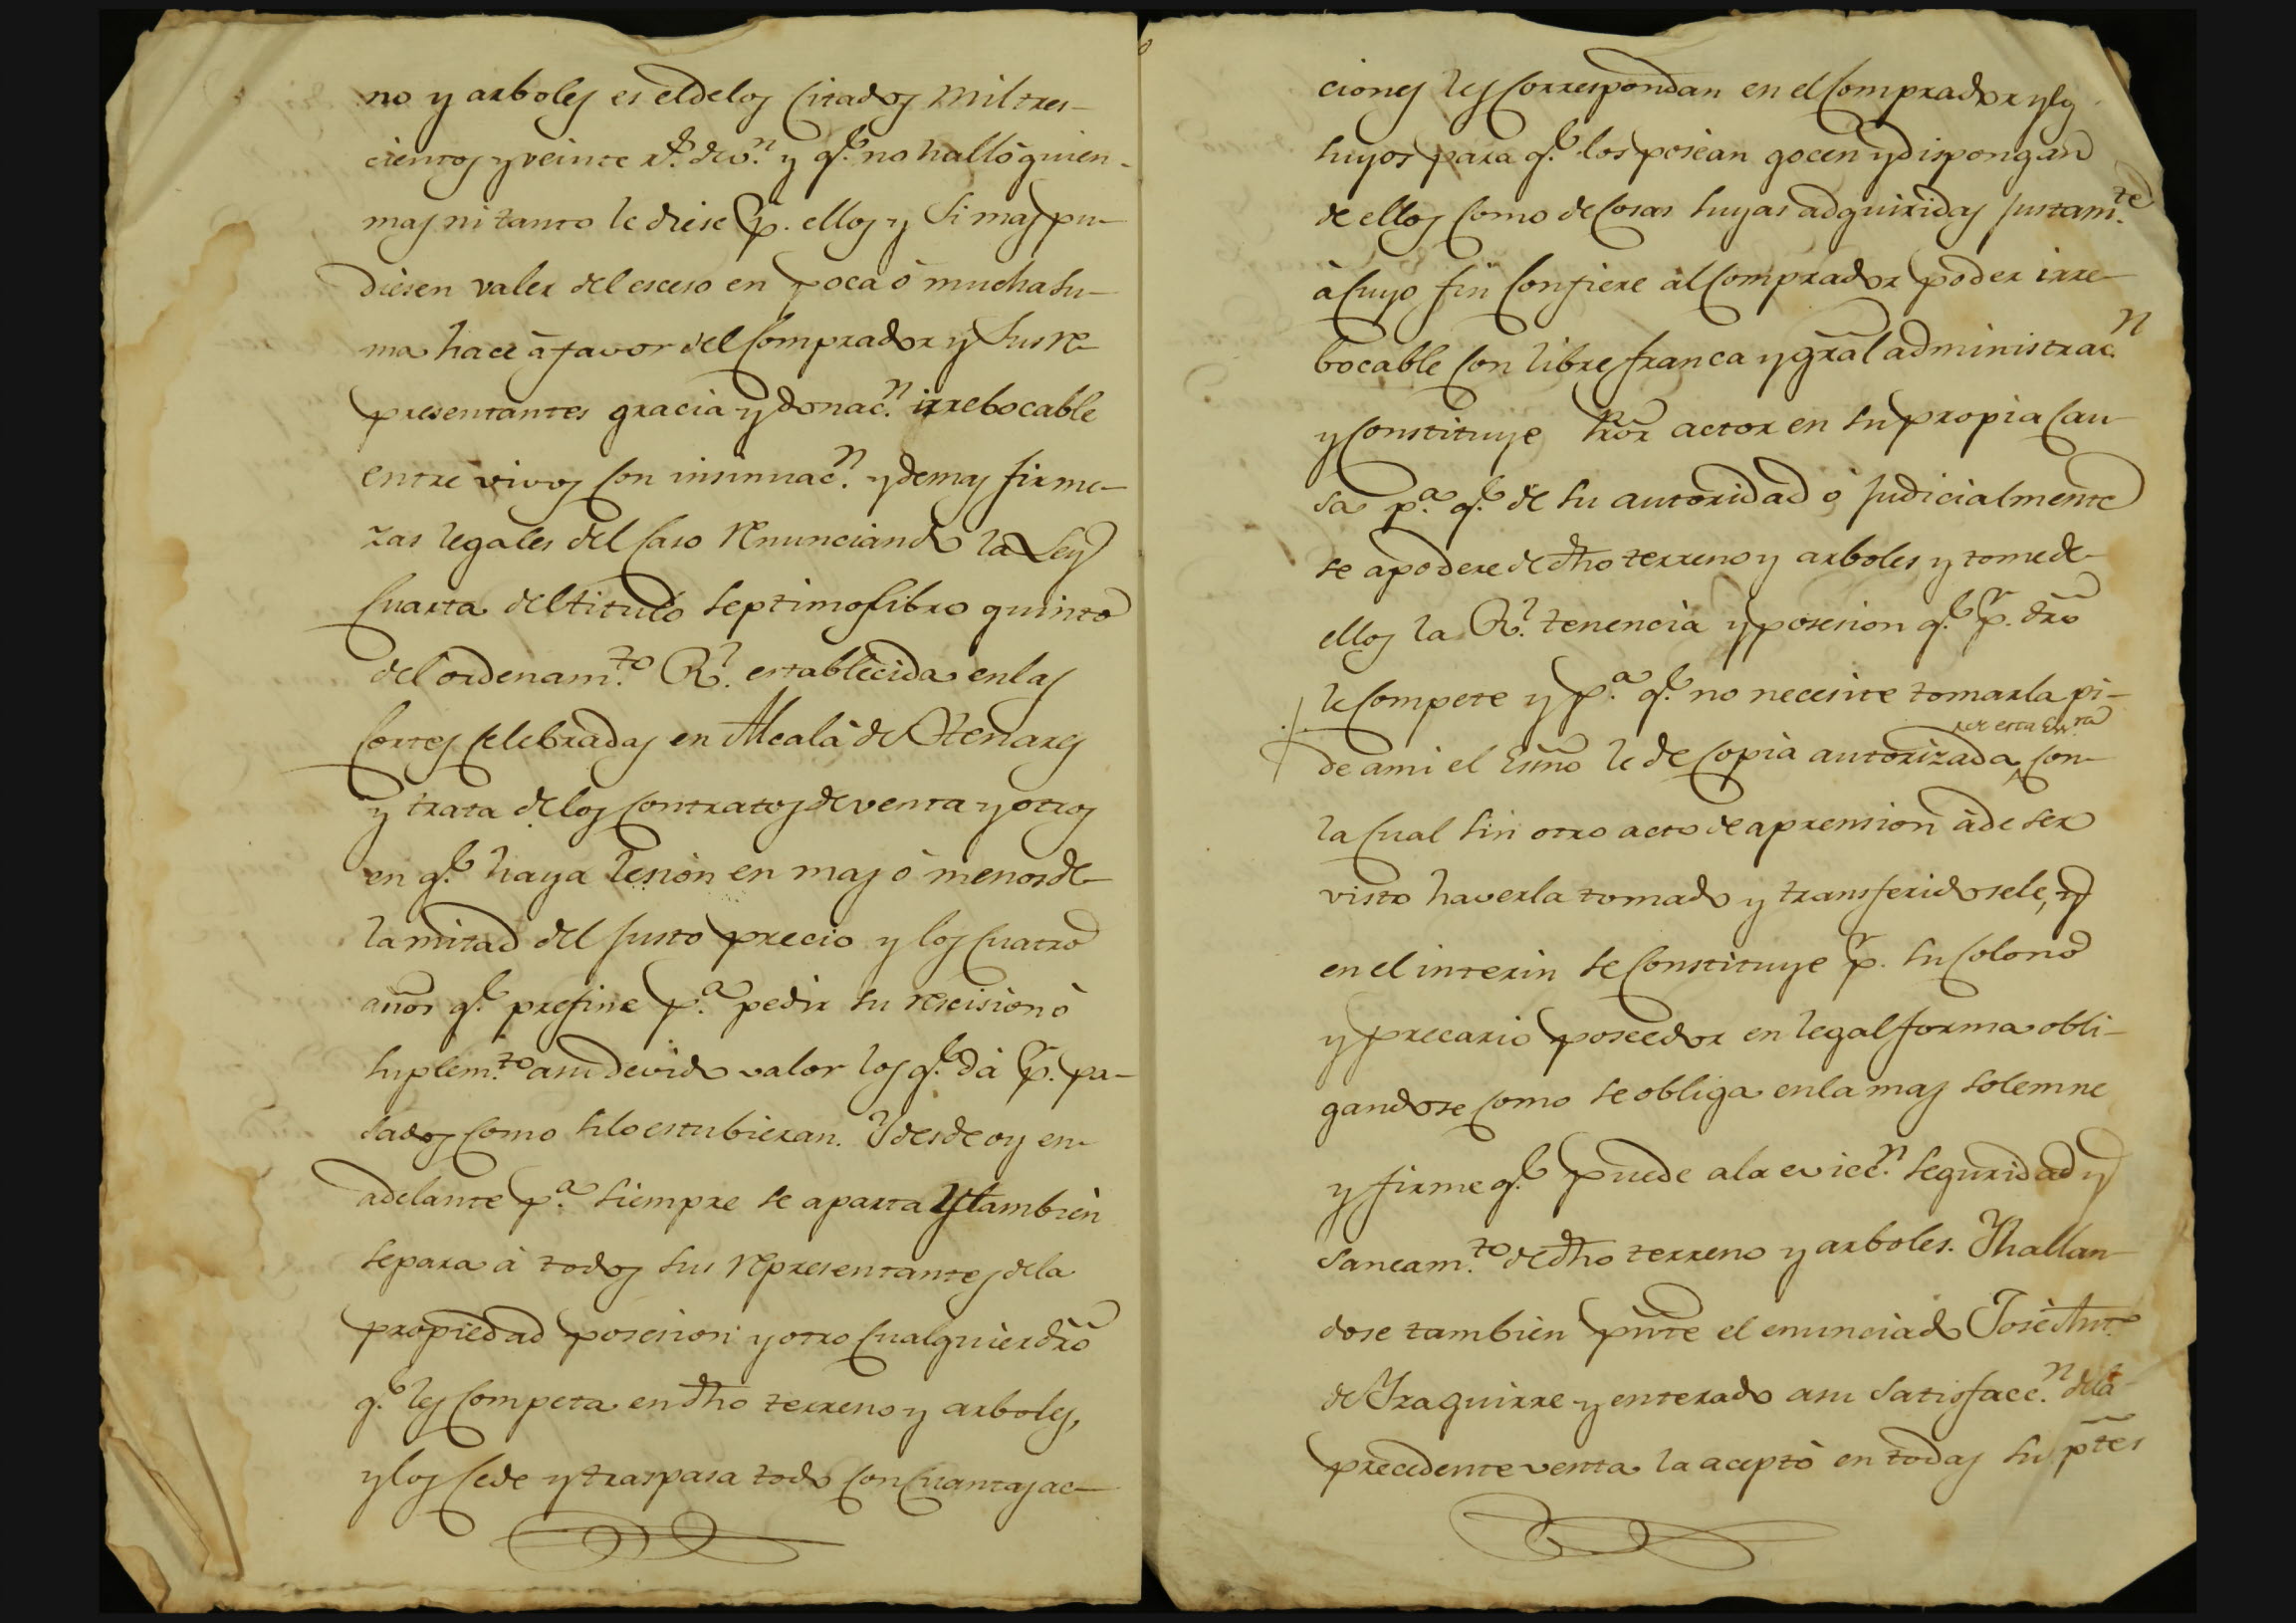 no y arboles es el de los citados mil tres-
cientos y veinte r.s de v.n y q.e no halló quien
mas ni tanto le diese p.r ellos y si mas pu-
diesen valer del esceso en poca ó mucha su-
ma hace à favor del Comprador y sus re-
presentantes gracia y donac.n irrebocable
entre vivos con insinuac.n y demas firme-
zas legales del caso renunciando la Ley
cuarta del titulo septimo libro quinto
del ordenam.to R.l establecida en las
Cortes celebradas en Alcalà de Henares
y trata de los contratos de venta y otros
en q.e haya lesion en mas ó menos de
la mitad del justo precio y los cuatro
años q.e prefine p.a pedir su rescision ó
suplem.to a su devido valor los q.e dà p.r pa-
sados como si lo estubieran. Y desde oy en
adelante p.a siempre se aparta y tambien
separa à todos sus representantes de la
propiedad posesion y otro cualquier dro
q.e les competa en dho terreno y arboles,
y los cede y traspasa todo con cuantas ac-
ciones les correspondan en el Comprador y los
suyos para q.e los posean gocen y dispongan
de ellos como de cosas suyas adquiridas justam.te
à cuyo fin confiere al Comprador poder irre-
bocable con libre franca y gral administrac.n
y constituye Pror actor en su propia cau-
sa p.a q.e de su autoridad ó judicialmente
se apodere de dho terreno y arboles y tome de
ellos la R.l tenencia y posesion q.e p.r dro
le compete y p.a q.e no necesite tomarla pi-
de esta Esc.ra
de a mi el Esño le de copia autorizada con
la cual sin otro acto de aprension à de ser
visto haverla tomado y transferidosele, y
en el interin se constituye p.r su colono
y precario poseedor en legal forma obli-
gandose como se obliga en la mas solemne
y firme q.e puede a la evicc.n seguridad y
saneam.to de dho terreno y arboles. Y hallan-
dose tambien pnte el enunciado José Ant.o
de Yraguirre y enterado a su satisfacc.n de la
precedente venta la aceptò en todas su ptes